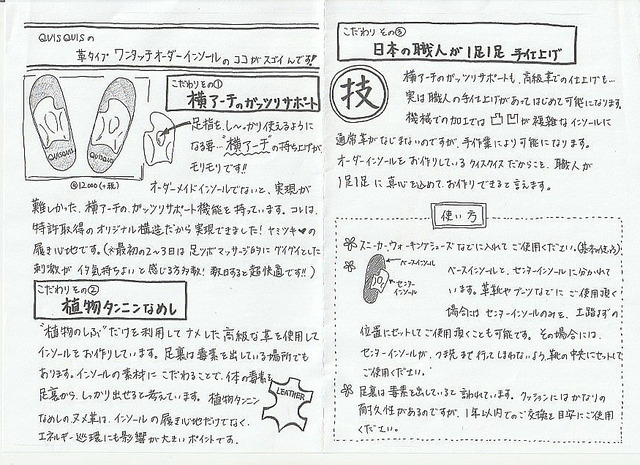 QUISQUISの
革タイプ ワンタッチオーダーインソールの ココがスゴイんです!!
こだわりその①
横アーチのガッツリサポート
足指を、し〜っかり使えるように
なる事…"横アーチ"の持ち上げが
モリモリです!!
QUISQUIS
QUISQUIS
@12,000(+税)
オーダーメイドインソールでないと、実現が
難しかった、横アーチの、ガッツリサポート機能を持っています。コレは、
特許取得のオリジナル構造だから実現できました!ヤミツキ♥の
履き心地です。(※最初の2〜3日は足ツボマッサージのようにグイグイとした
刺激が イタ気持ちよいと感じる方多数!
こだわりその②
植物タンニンなめし
"植物のしぶ"だけを利用してナメした高級な革を使用して
インソールをお作りしています。足裏は毒素を出している場所でも
あります。インソールの素材にこだわることで、体の毒素を
足裏から、しっかり出せると考えています。植物タンニン
なめしのヌメ革は、インソールの履き心地だけでなく、
エネルギー循環にも影響が大きいポイントです。
LEATHER
こだわり その③
日本の職人が1足1足 手仕上げ
技
横アーチのガッツリサポートも、高級革での仕上げも…
実は職人の手仕上げがあってはじめて可能になります。
機械での加工では 凸凹が複雑なインソールに
通常革がなじまないのですが、手作業により可能になります。
オーダーインソールをお作りしているクイスクイスだからこそ、職人が
1足1足に真心を込めて、お作りできると言えます。
使い方
スニーカー、ウォーキングシューズなどに入れてご使用ください。(基本の使い方)
ベースインソール
センターインソール
ベースインソールと、センターインソールに分かれて
います。革靴やブーツなどに ご使用頂く
場合には センターインソールのみを、土踏まずの
位置にセットしてご使用頂くことも可能です。その場合には、
センターインソールが、つま先まで行ってしまわないよう、靴の中央にセットして
ご使用ください。
足裏は毒素を出していると 言われています。クッションにはかなりの
耐久性があるのですが、1年以内でのご交換を目安にご使用
ください。